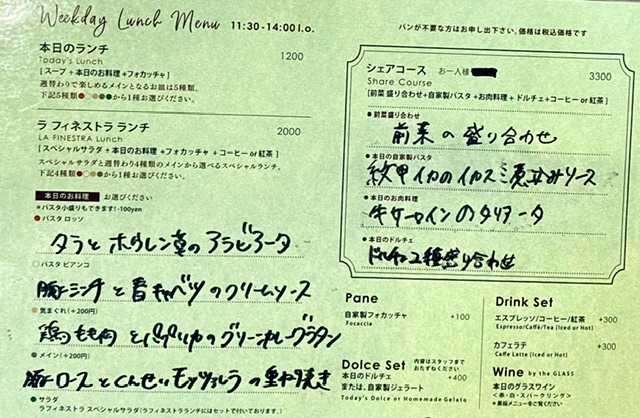 Weekday Lunch Menu 11:30-14:00 l.o.
本日のランチ 1200
Today's Lunch
[スープ+本日のお料理+フォカッチャ]
週替わりで楽しめるメインとなるお皿は5種類。
下記5種類●○●●●から1種お選びください。
ラ フィネストラ ランチ 2000
LA FINESTRA Lunch
[スペシャルサラダ+本日のお料理+フォカッチャ+コーヒーor紅茶]
スペシャルサラダと週替わり4種類のメインから選べるスペシャルランチ。
下記4種類●○●●から1種お選びください。
本日のお料理 お選びください
*パスタ小盛りもできます!-100yen
●パスタ ロッソ
タラとホウレン草のアラビアータ
○パスタ ビアンコ
豚ミンチと春キャベツのクリームソース
●気まぐれ(+200円)
鶏もも肉とパプリカのグリーンカレーグラタン
●メイン(+200円)
豚ロースとくんせいモッツァレラの重ね焼き
●サラダ
ラフィネストラ スペシャルサラダ(ラフィネストラランチにはセットで付いております。)
パンが不要な方はお申し出下さい。価格は税込価格です
シェアコース お一人様 3300
Share Course
[前菜盛り合わせ+自家製パスタ+お肉料理+ドルチェ+コーヒーor紅茶]
●前菜盛り合わせ
前菜の盛り合わせ
●本日の自家製パスタ
紋甲イカのイカスミ煮込みソース
●本日のお肉料理
牛ケンネインのタリアータ
●本日のドルチェ
ドルチェ2種盛り合わせ
Pane
自家製フォカッチャ +100
Focaccia
Dolce Set 内容はスタッフまでおたずねください
本日のドルチェ +400
または、自家製ジェラート
Today's Dolce or Homemade Gelato
Drink Set
エスプレッソ/コーヒー/紅茶 +300
Espresso/Caffè/Tea (Iced or Hot)
カフェラテ +300
Caffè Latte (Iced or Hot)
Wine by the GLASS
本日のグラスワイン
<赤・白・スパークリング>
*裏面メニューをご覧ください